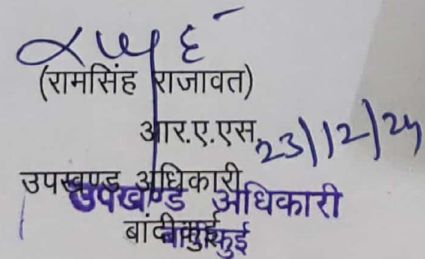 (रामसिंह राजावत)
आर.ए.एस.
23/12/24
उपखण्ड अधिकारी
उपखण्ड अधिकारी
बांदीकुई
बांदीकुई